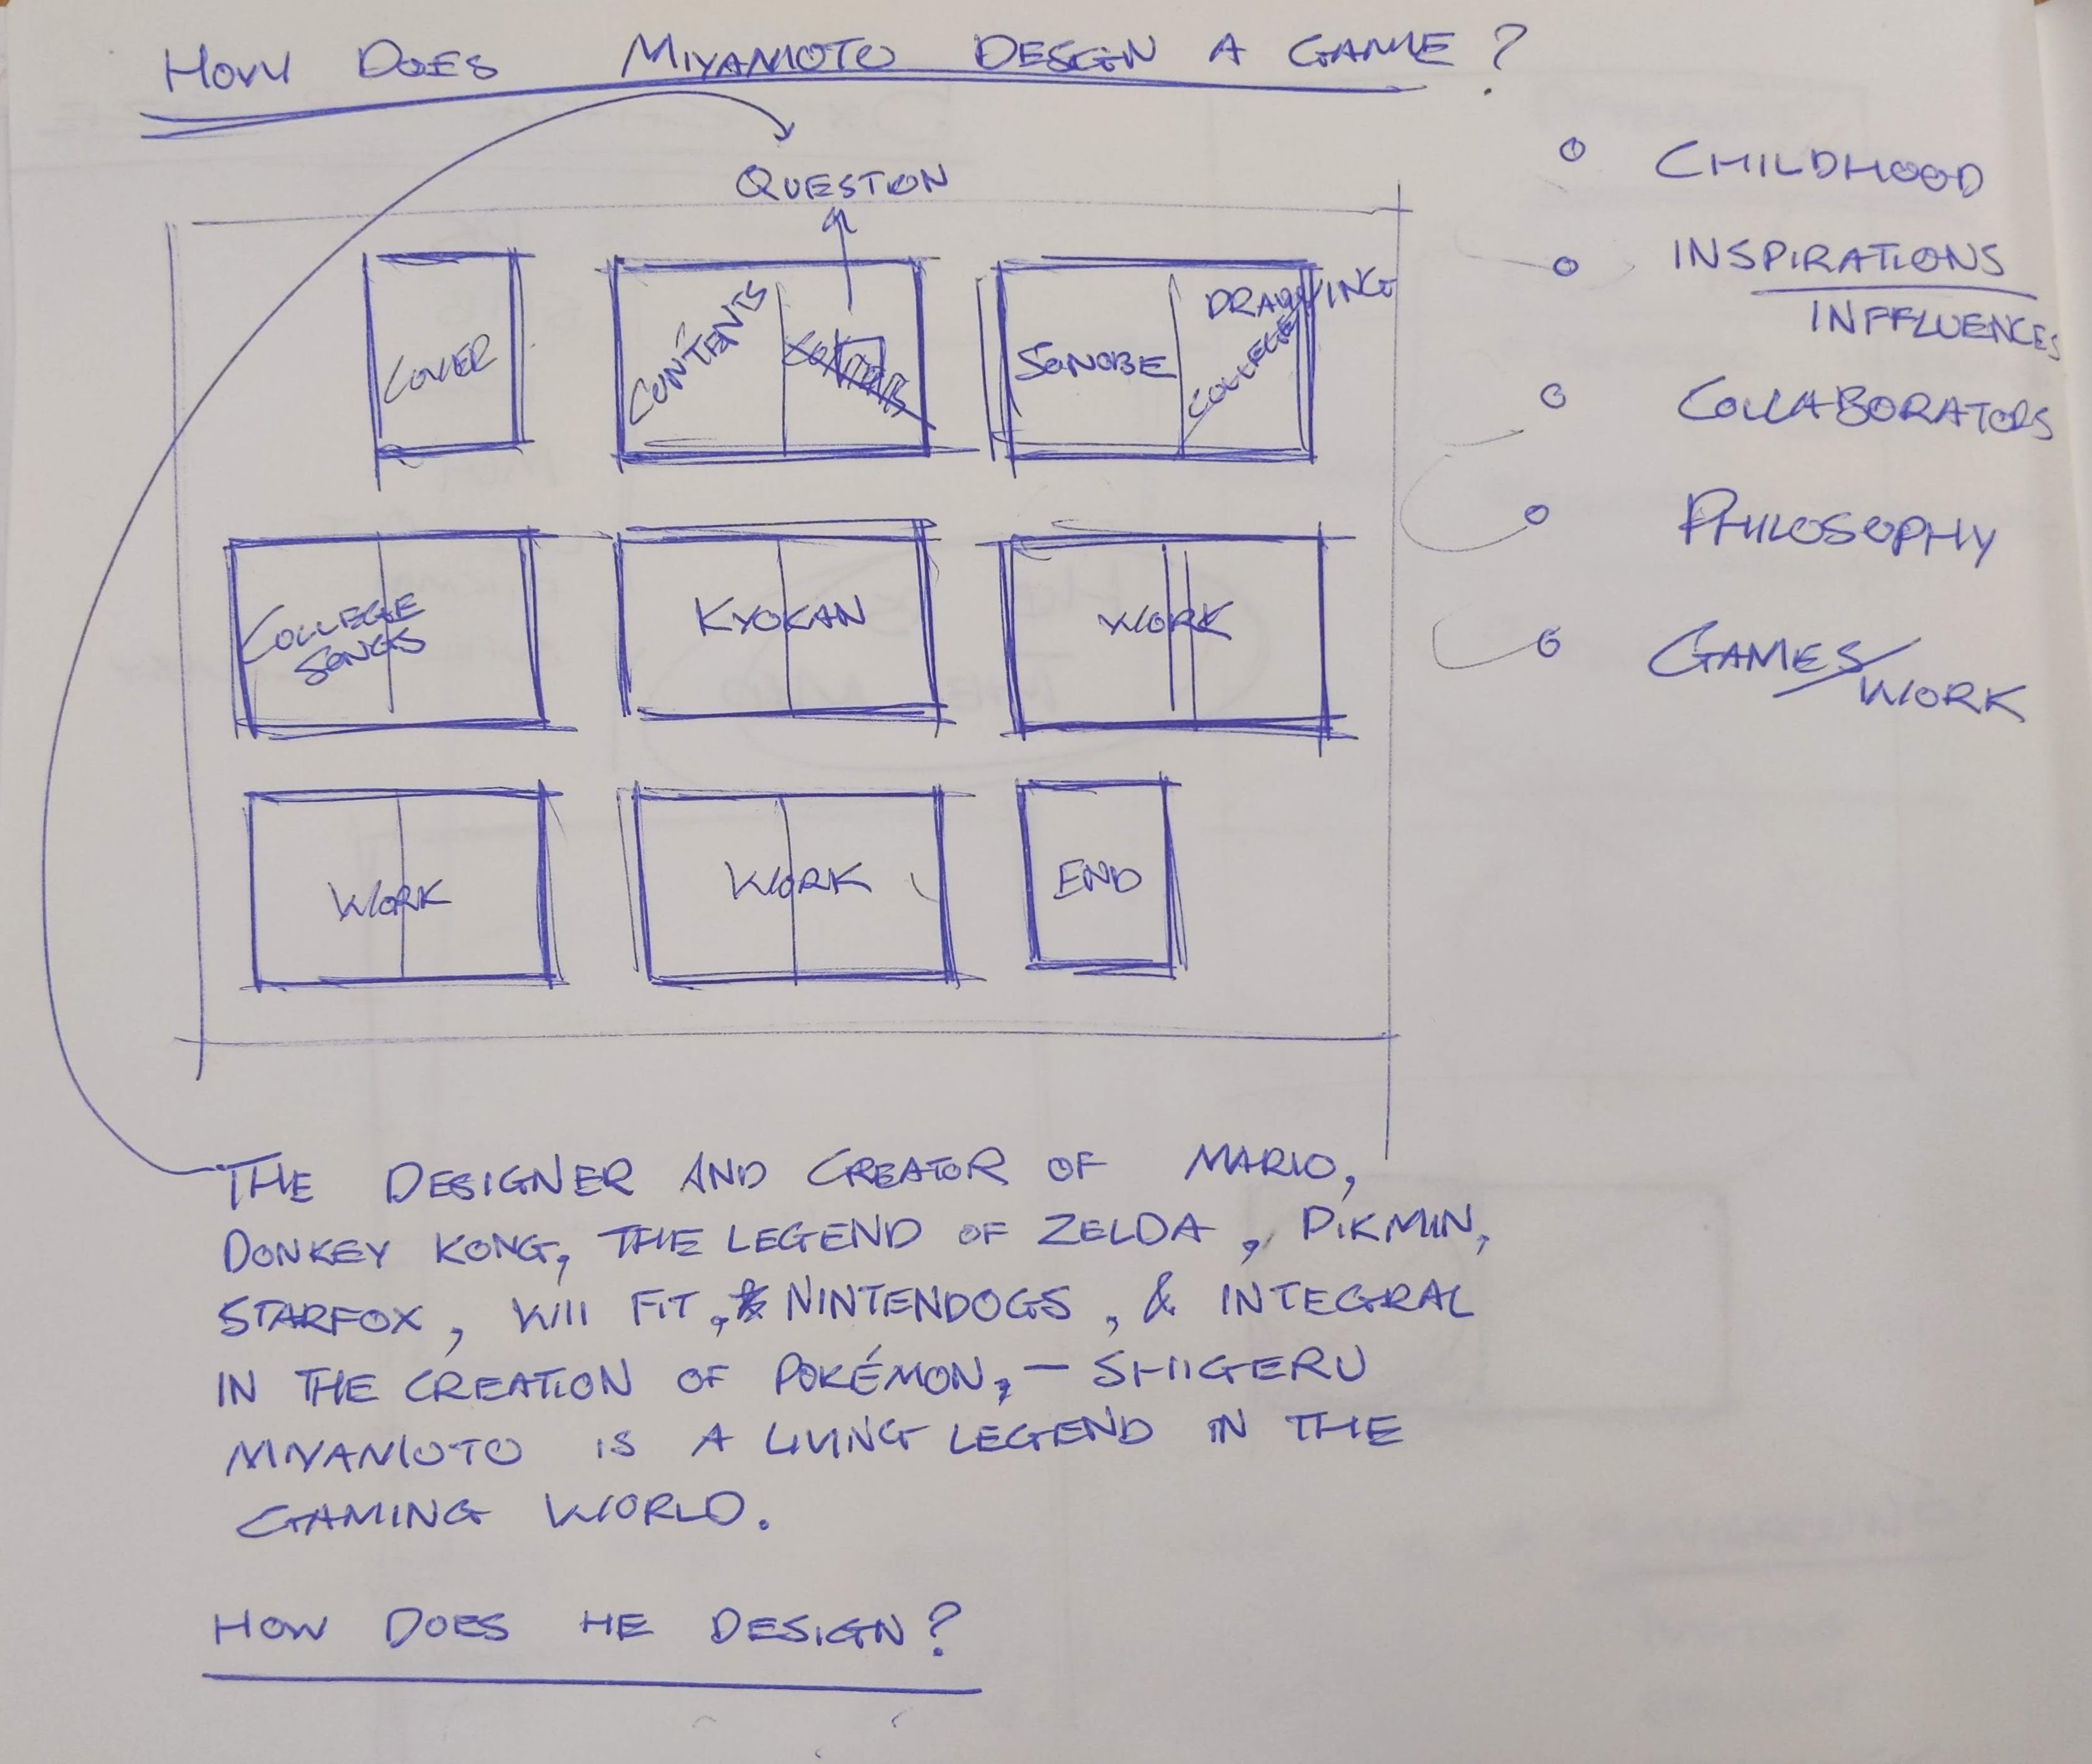 HOW DOES MIYAMOTO DESIGN A GAME?
QUESTION
COVER
CONTENTS
SONOBE
DRAWING
COLLEGE
COLLEGE
SONGS
KYOKAN
WORK
WORK
WORK
END
CHILDHOOD
INSPIRATIONS
INFFLUENCES
COLLABORATORS
PHILOSOPHY
GAMES/
WORK
THE DESIGNER AND CREATOR OF MARIO,
DONKEY KONG, THE LEGEND OF ZELDA, PIKMIN,
STARFOX, WII FIT, NINTENDOGS, & INTEGRAL
IN THE CREATION OF POKÉMON, — SHIGERU
MIYAMOTO IS A LIVING LEGEND IN THE
GAMING WORLD.
HOW DOES HE DESIGN?